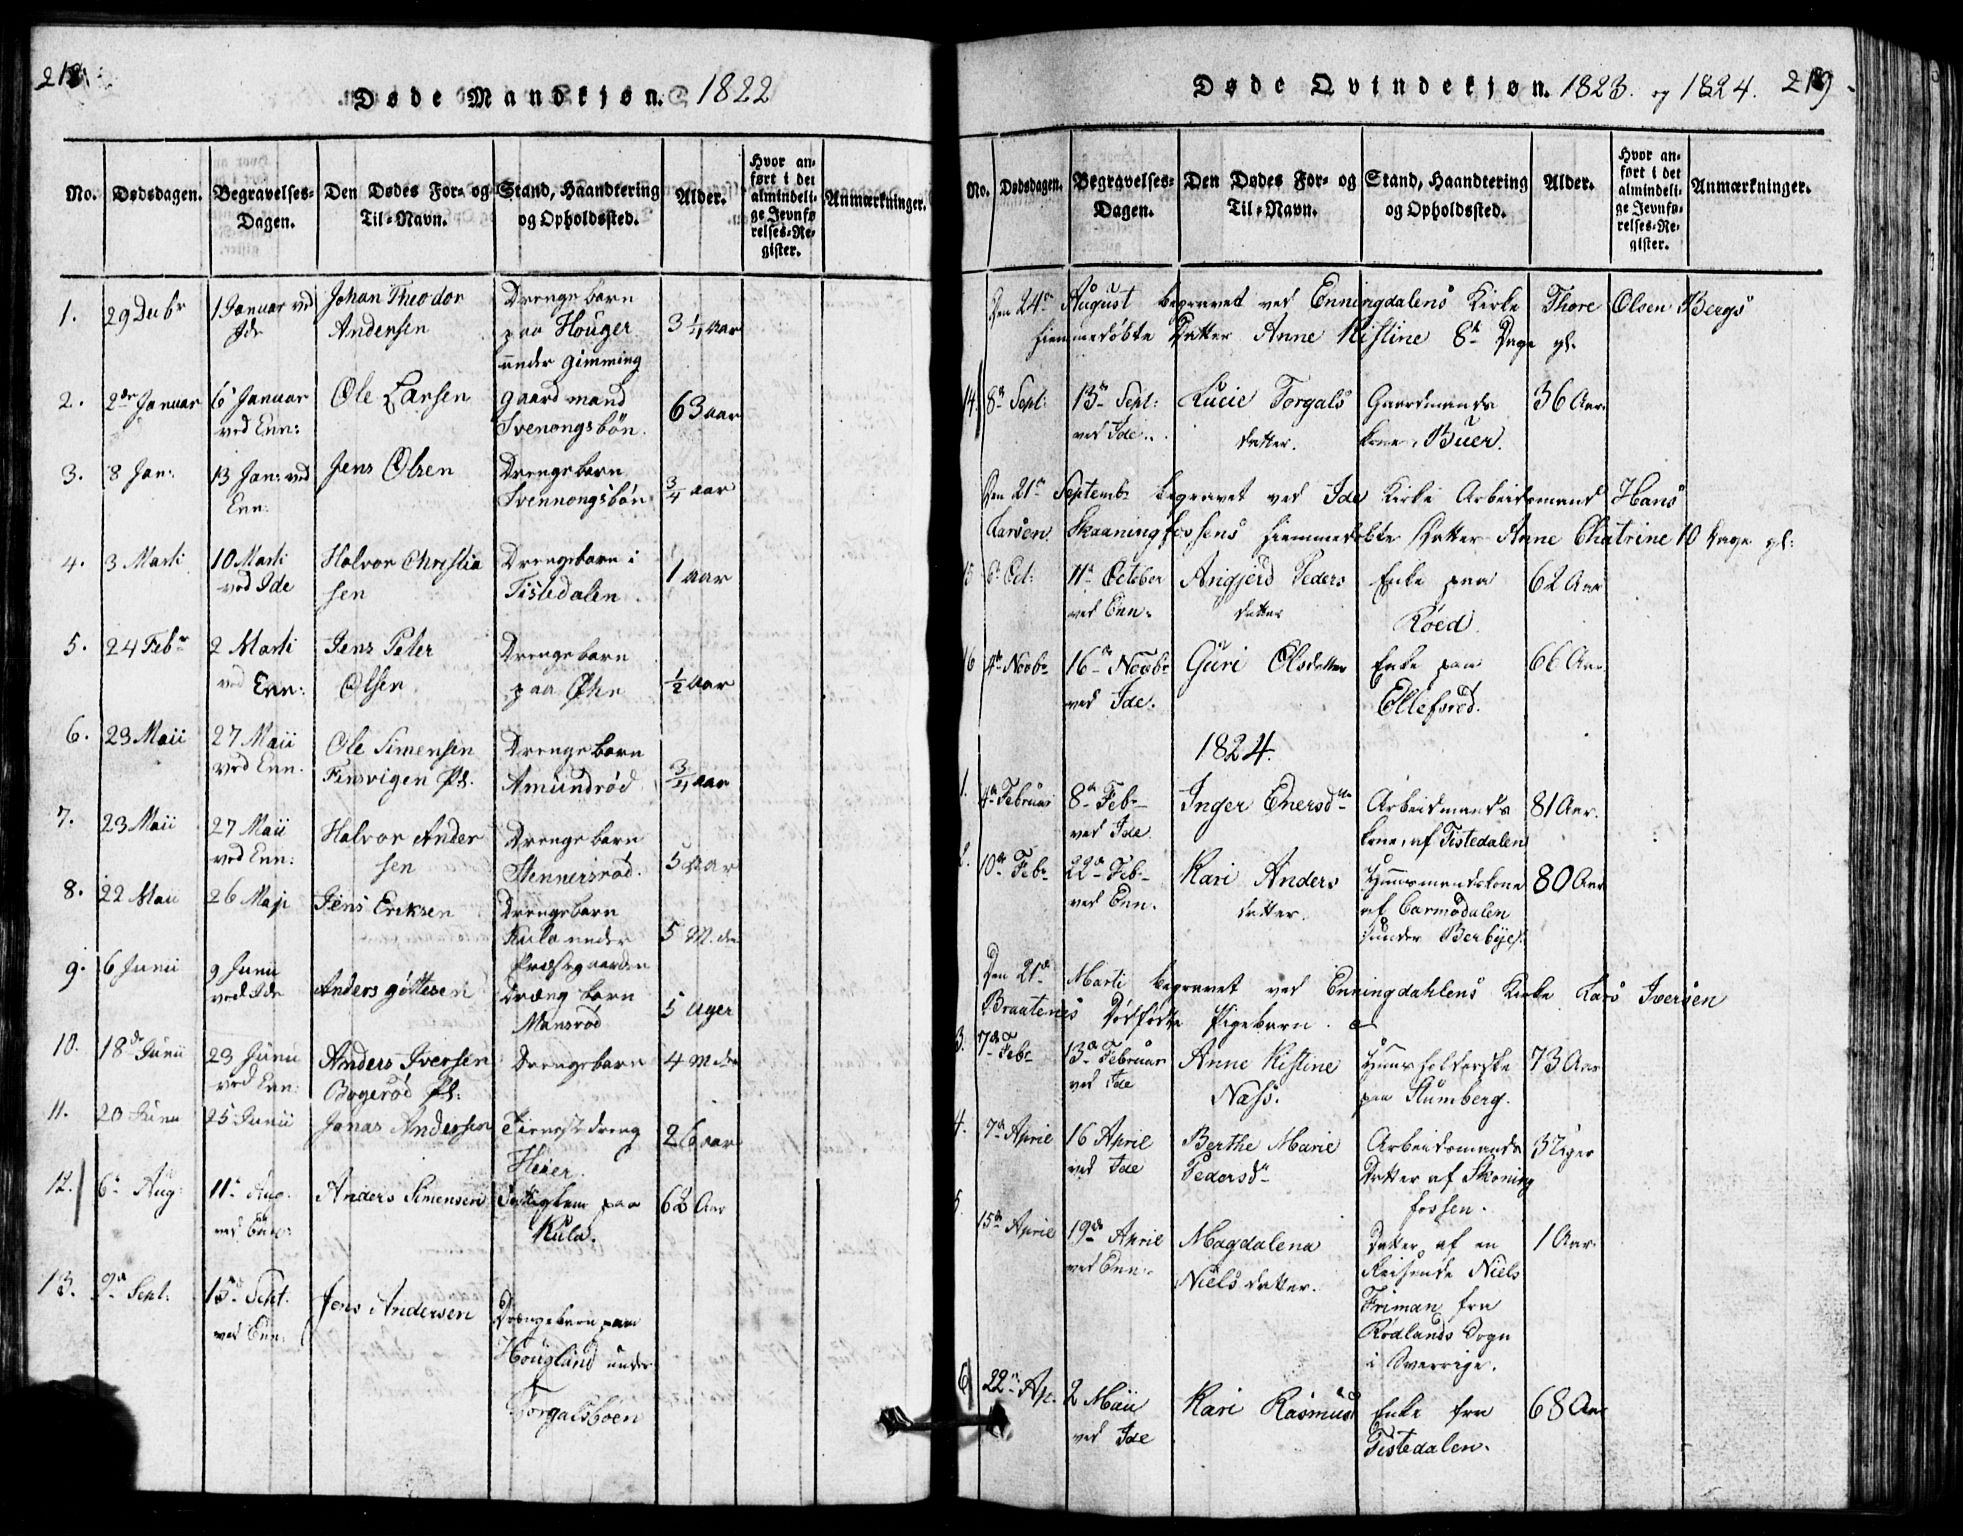 218.
Døde Mandkjøn. 1822
No. Dødsdagen. Begravelses-Dagen. Den Dødes For- og Til-Navn. Stand, Haandtering og Opholdssted. Alder. Hvor anført i det almindelige Jevnførelses-Register. Anmærkninger.
1. 29 Decbr 1 Januar ved Johan Theodor Drengebarn
Ide Andersen paa Houger 3 1/4 aar
under Gimming
2. 2de Januar 6 Januar Ole Larsen Gaardmand 63 aar
ved Enn: Svenongsbön.
3. 8 Jan: 13 Jan: ved Jens Olsen Drengebarn 3/4 aar
Enn: Svennongsbön
4. 3 Marti 10 Marti Halvor Christia Drengebarn i 1 aar
ved Ide sen Tistedalen
5. 24 Febr 2 Marti Jens Peter Drengebarn
ved Enn: Olsen paa 1/2 aar
6. 23 Maii 27 Maii Ole Simensen Drengebarn
ved Enn. Pl. Amundrød 3/4 aar
7. 23 Maii 27 Maii Halvor Ander Drengebarn
ved Enn: sen Stennersrød. 5 aar
8. 22 Maii 26 Maji Jens Eriksen Drengebarn
Kula under 5 M.der
Præstegaarden
9. 6 Junii 9 Junii Anders Dreng barn
ved Ide Mansrød 5 Uger
10. 18de Junii 23 Junii Anders Iversen Drengebarn 4 M.der
ved Enn: Bøgerød Pl:
11. 20 Junii 25 Junii Jonas Andersen Tienestdreng 26 aar
Heier.
12. 6te Aug: 11te Aug. Anders Simensen paa 62 Aar
ved Enn: Kula.
13. 9de Sept: 15de Sept. Jens Andersen Drengebarn paa
ved Enn: Hougland under
Torgalsböen
Døde Qvindekjøn. 1823. og 1824. 219.
No. Dødsdagen. Begravelses-Dagen. Den Dødes For- og Til-Navn. Stand, Haandtering og Opholdssted. Alder. Hvor anført i det almindelige Jevnførelses-Register. Anmærkninger.
Den 24de August begravet ved Enningdalens Kirke Thore Olsen Bergs
hiemmedøbte Datter Anne Kistine 8te Dage gl.
14. 8de Sept: 13de Sept: Lucie Torgals Gaardmands 36 Aar.
ved Ide. datter. kone, Buer.
Den 21de Septembr begravet ved Ide Kirke Arbeidsmand Hans
Larsen Skaaningfossens hiemmedøbte Datter Anne Chatrine 10 Dage gl:
15 6te Oct: 11te October Peders Enke paa 62 Aar
ved Enn: datter Röed.
16 4de Novbr 16de Novbr Guri Olsdatter Enke paa 66 Aar
ved Ide. Ellefsröd.
1824.
1. 4de Februar 8de Febr Inger Enersdtr Arbeidsmands 81 Aar.
ved Ide kone, af Tistedalen
2. 10de Febr 22de Febr Kari Anders Huusmandskone 80 Aar
ved Enn. datter. af Carmodalen
under Berbye.
Den 21de Marti begravet ved Enningdahlens Kirke Lars Iversen
Braatenes Dødfødte Pigebarn.
3. 7de Febr 13de Februar Anne Kistine Huusholderske 73 Aar
ved Ide Nass. paa Stumberg.
4. 7de April 16 April Berthe Marie Arbeidsmands 3 Uger
ved Ide Pedersdr Datter af Skoning
fossen.
5 15de April 19de April Magdalena Datter af en 1 Aar.
ved Enn: Niels datter. Reisende Niels
Friman fra
Rödlands Sogn
i Sverrige.
6 22de Ap. 2 Maii Kari Rasmus Enke fra 68 Aar
ved Ide Tistedalen.